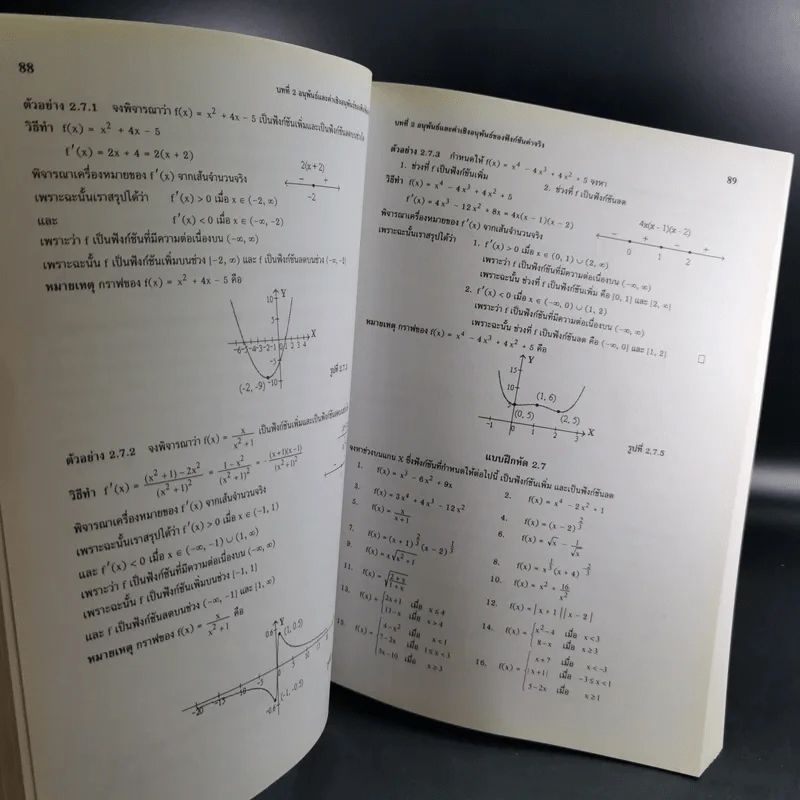 88
บทที่ 2 อนุพันธ์และค่าเชิงอนุพันธ์ของฟังก์ชัน
ตัวอย่าง 2.7.1 จงพิจารณาว่า f(x) = x² + 4x − 5 เป็นฟังก์ชันเพิ่มและเป็นฟังก์ชันลดบนช่วงใด
วิธีทำ f(x) = x² + 4x − 5
f′(x) = 2x + 4 = 2(x + 2)
พิจารณาเครื่องหมายของ f′(x) จากเส้นจำนวนจริง
2(x + 2)
− +
−2
เพราะฉะนั้นเราสรุปได้ว่า f′(x) > 0 เมื่อ x ∈ (−2, ∞)
และ f′(x) < 0 เมื่อ x ∈ (−∞, −2)
เพราะว่า f เป็นฟังก์ชันที่มีความต่อเนื่องบน (−∞, ∞)
เพราะฉะนั้น f เป็นฟังก์ชันเพิ่มบนช่วง [−2, ∞) และ f เป็นฟังก์ชันลดบนช่วง (−∞, −2]
หมายเหตุ กราฟของ f(x) = x² + 4x − 5 คือ
Y
10
5
X
−6 −5 −4 −3 −2 −1 0 1 2 3 4
−5
−10
(−2, −9)
รูปที่ 2.7.
ตัวอย่าง 2.7.2 จงพิจารณาว่า f(x) = x/(x² + 1) เป็นฟังก์ชันเพิ่มและเป็นฟังก์ชันลด
วิธีทำ f′(x) = ((x² + 1) − 2x²)/(x² + 1)² = (1 − x²)/(x² + 1)² = −(x + 1)(x − 1)/(x² + 1)²
พิจารณาเครื่องหมายของ f′(x) จากเส้นจำนวนจริง
เพราะฉะนั้นเราสรุปได้ว่า f′(x) > 0 เมื่อ x ∈ (−1, 1)
และ f′(x) < 0 เมื่อ x ∈ (−∞, −1) ∪ (1, ∞)
เพราะว่า f เป็นฟังก์ชันที่มีความต่อเนื่องบน (−∞, ∞)
เพราะฉะนั้น f เป็นฟังก์ชันเพิ่มบนช่วง [−1, 1]
และ f เป็นฟังก์ชันลดบนช่วง (−∞, −1] และ [1, ∞)
หมายเหตุ กราฟของ f(x) = x/(x² + 1) คือ
Y
0.6
(1, 0.5)
−20 −15 −10 −5 0
(−1, −0.5)
−0.6
บทที่ 2 อนุพันธ์และค่าเชิงอนุพันธ์ของฟังก์ชันค่าจริง
89
ตัวอย่าง 2.7.3 กำหนดให้ f(x) = x⁴ − 4x³ + 4x² + 5 จงหา
1. ช่วงที่ f เป็นฟังก์ชันเพิ่ม 2. ช่วงที่ f เป็นฟังก์ชันลด
วิธีทำ f(x) = x⁴ − 4x³ + 4x² + 5
f′(x) = 4x³ − 12x² + 8x = 4x(x − 1)(x − 2)
พิจารณาเครื่องหมายของ f′(x) จากเส้นจำนวนจริง
4x(x − 1)(x − 2)
− + − +
0 1 2
เพราะฉะนั้นเราสรุปได้ว่า 1. f′(x) > 0 เมื่อ x ∈ (0, 1) ∪ (2, ∞)
เพราะว่า f เป็นฟังก์ชันที่มีความต่อเนื่องบน (−∞, ∞)
เพราะฉะนั้น ช่วงที่ f เป็นฟังก์ชันเพิ่ม คือ [0, 1] และ [2, ∞)
2. f′(x) < 0 เมื่อ x ∈ (−∞, 0) ∪ (1, 2)
เพราะว่า f เป็นฟังก์ชันที่มีความต่อเนื่องบน (−∞, ∞)
เพราะฉะนั้น ช่วงที่ f เป็นฟังก์ชันลด คือ (−∞, 0] และ [1, 2]
หมายเหตุ กราฟของ f(x) = x⁴ − 4x³ + 4x² + 5 คือ
Y
15
10
5
(1, 6)
(0, 5)
(2, 5)
−1 0 1 2 3 X
รูปที่ 2.7.5
แบบฝึกหัด 2.7
จงหาช่วงบนแกน X ซึ่งฟังก์ชันที่กำหนดให้ต่อไปนี้ เป็นฟังก์ชันเพิ่ม และเป็นฟังก์ชันลด
1. f(x) = x³ − 6x² + 9x
2. f(x) = x⁴ − 2x² + 1
3. f(x) = 3x⁴ + 4x³ − 12x²
4. f(x) = (x − 2)^(2/3)
5. f(x) = x/(x + 1)
6. f(x) = √x − 1/√x
7. f(x) = (x + 1)^(2/3) (x − 2)^(1/3)
9. f(x) = x√(x² + 1)
10. f(x) = x² + 16/x²
12. f(x) = |x + 1||x − 2|
13. f(x) = { 2x + 1 เมื่อ x ≤ 4
13 − x เมื่อ x > 4
14. f(x) = { x² − 4 เมื่อ x < 3
8 − x เมื่อ x ≥ 3
15. f(x) = { 4 − x² เมื่อ x < 1
7 − 3x เมื่อ 1 ≤ x < 3
3x − 10 เมื่อ x ≥ 3
16. f(x) = { x + 7 เมื่อ x < −3
|x + 1| เมื่อ −3 ≤ x < 1
5 − 2x เมื่อ x ≥ 1